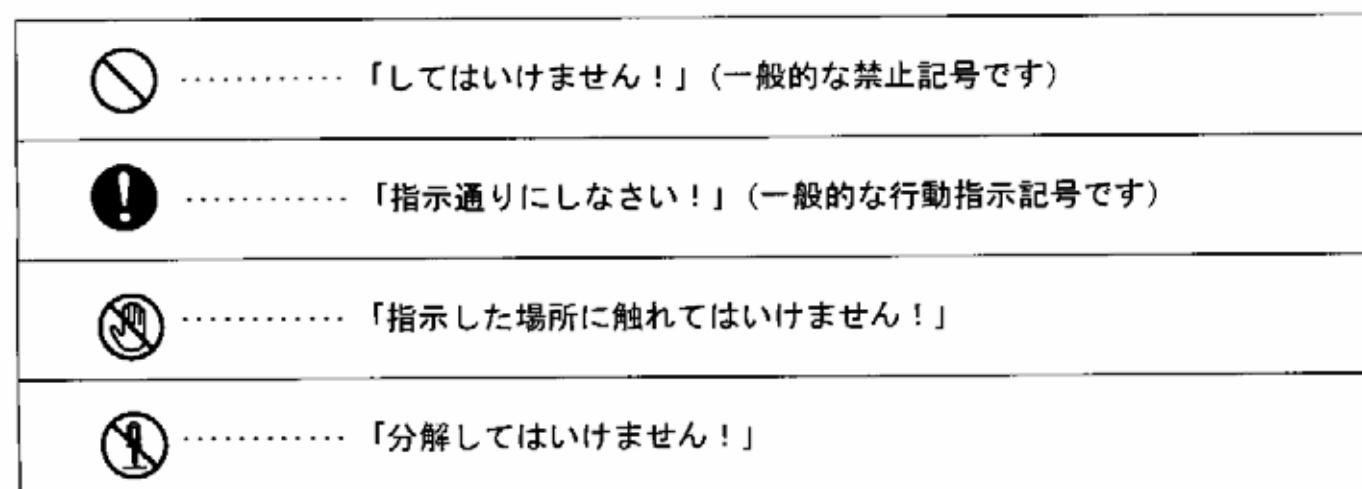 ………… 「してはいけません！」（一般的な禁止記号です）
………… 「指示通りにしなさい！」（一般的な行動指示記号です）
………… 「指示した場所に触れてはいけません！」
………… 「分解してはいけません！」